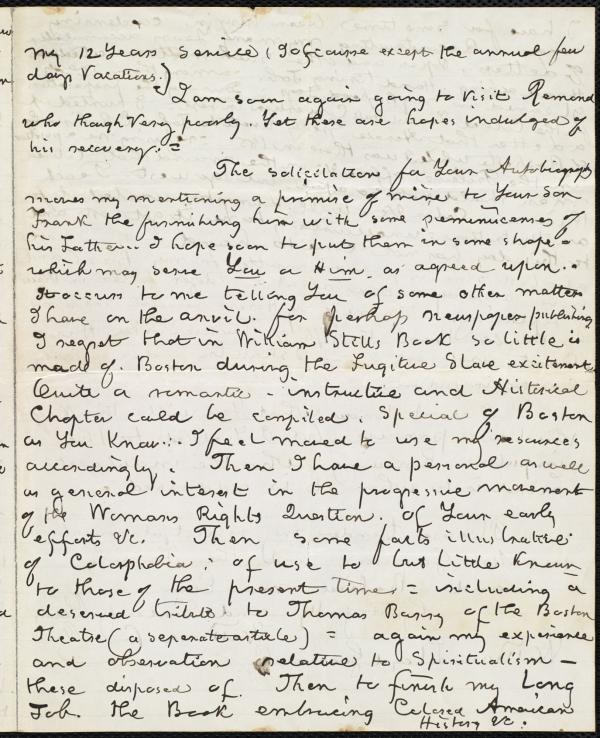 my 12 Years service (Of course except the annual few
days Vacations.)
I am soon again going to visit Remond
who though Very poorly. Yet there are hopes indulged of
his recovery. =
The solicitation for Your Autobiography
moves my mentioning a promise of mine to Your Son
Frank the furnishing him with some reminiscences of
his Father. I hope soon to put them in some shape
which may serve You or Him as agreed upon.
It occurs to me telling You of some other matters
I have on the anvil. for perhaps newspaper publishing
I regret that in William Stills Book so little is
made of Boston during the Fugitive Slave excitement
Quite a romantic - instructive and Historical
Chapter could be compiled. Special of Boston
as You Know. I feel moved to use my resources
accordingly. Then I have a personal as well
as general interest in the progressive movement
of the Womans Rights Question. Of Your early
efforts &c. Then some facts illustrative
of Colorphobia; of use to but little Known
to those of the present time = including a
deserved tribute to Thomas Barry of the Boston
Theatre (a seperate article) = again my experience
and observation relative to Spiritualism —
these disposed of. Then to finish my Long
Job. the Book embracing Colored American
History &c.